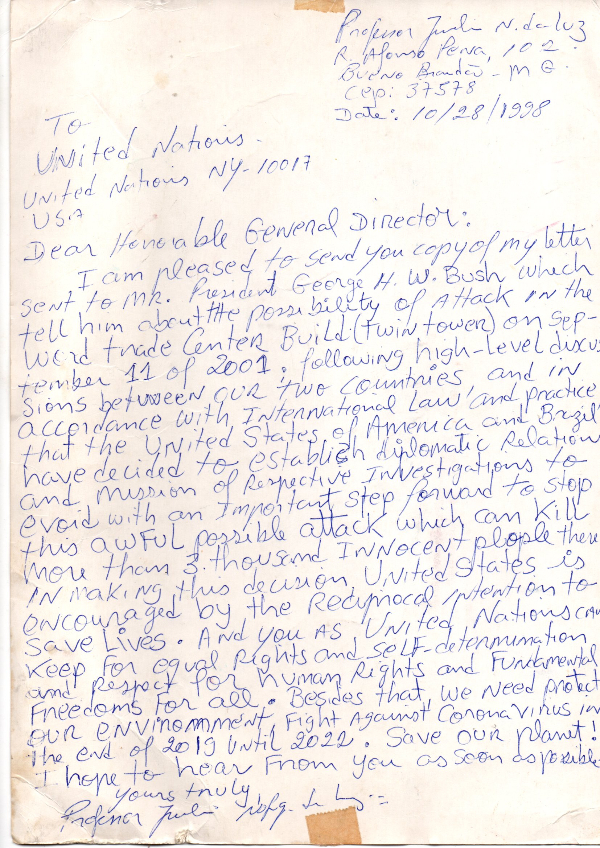 Professor Jucelino N. da Luz
R. Afonso Pena, 102.
Bueno Brandão - MG.
Cep: 37578
Date: 10/28/1998
To
United Nations.
United Nations NY-10017
USA
Dear Honorable General Director:
I am pleased to send you copy of my letter
sent to Mr. President George H. W. Bush which
tell him about the possibility of Attack in the
Word trade Center Build (twin tower) on Sep-
tember 11 of 2001. following high-level discus
sions between our two Countries and in
accordance with International Law and practice
that the United States of America and Brazil
have decided to establish diplomatic Relations
and mission of Respective Investigations to
evoid with an Important step forward to stop
this awful possible attack which can Kill
more than 3. thousand Innocent plople there
In making this decision, United States is
encouraged by the Reciprocal intention to
save Lives. And you As United Nations can
keep for equal Rights and self-determination,
and Respect for human Rights and Fundamental
Freedoms for all. Besides that, we need protect
our environmment, Fight Against Coronavirus in
the end of 2019 until 2022. Save our planet!
I hope to hear From you as soon as possible.
yours truly,
Professor